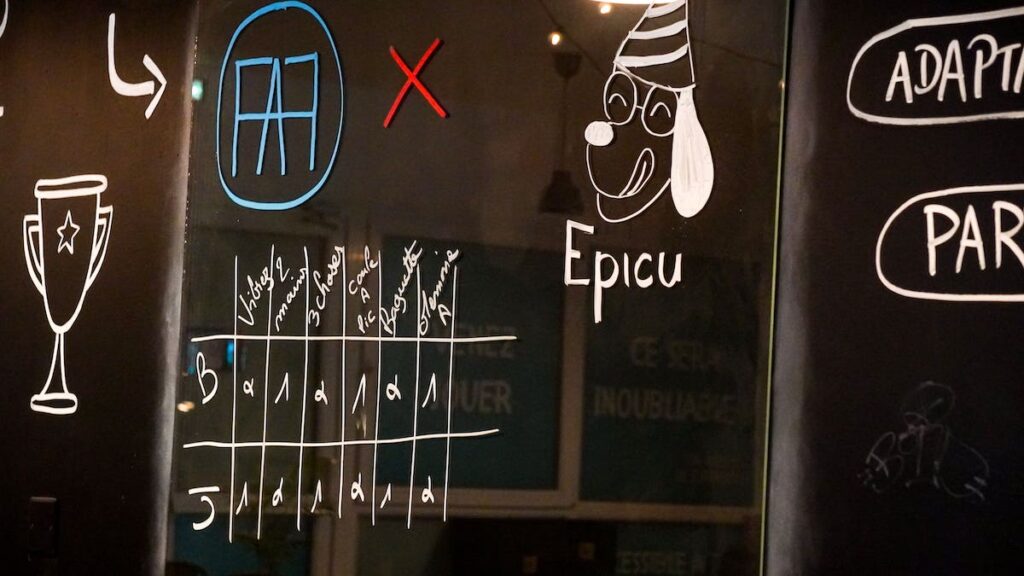 ADAPTA
PAR
Epicu
2 mains
3 choses
Baguette
B 2 1 2 1 2 1
J 1 2 1 2 1 2
VENEZ
JOUER
CE SERA
INOUBLIABLE